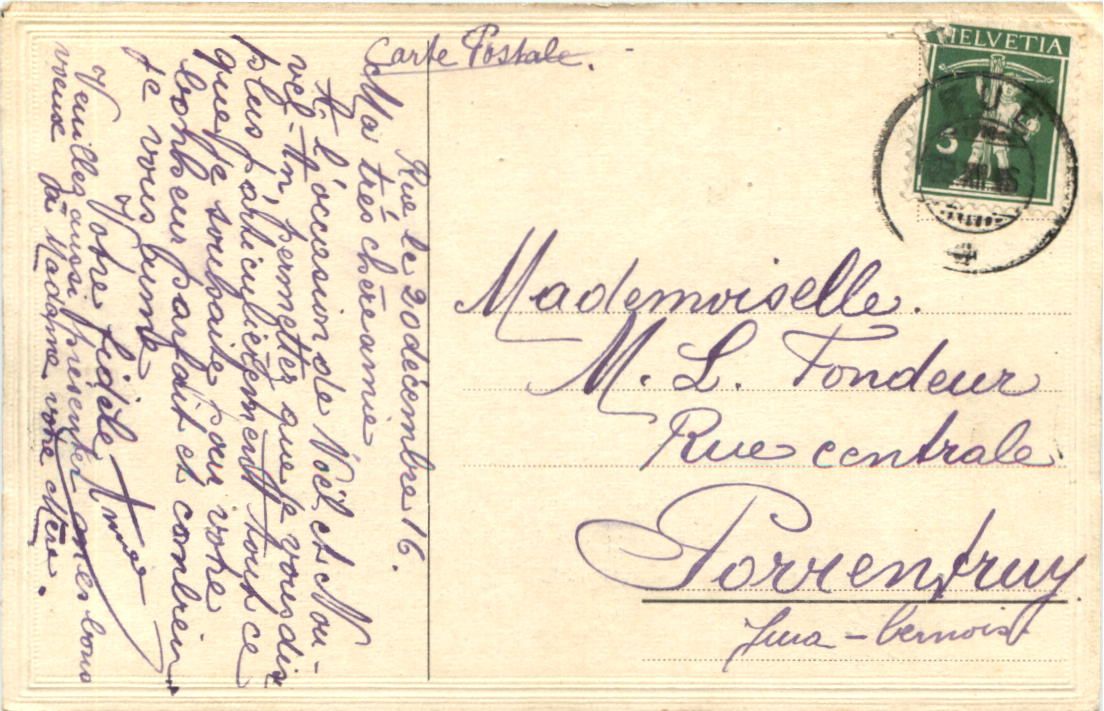 Carte Postale.
Rue le 20 décembre 16.
Ma très chère amie
A l'occasion de Noël et Nou-
vel-An, permettez que je vous dis
plus particulièrement tout ce
que je souhaite pour votre
bonheur parfait et combien
je vous aime
Votre fidèle
Veuillez aussi présenter mes bons
voeux à Madame votre Mère.
HELVETIA
5
RUE
Mademoiselle.
M. L. Fondeur
Rue centrale
Porrentruy
Jura-bernois